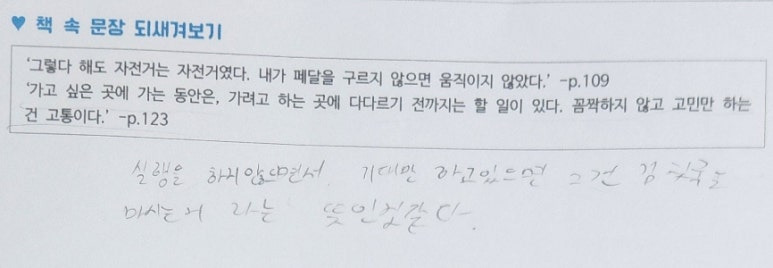 ♥ 책 속 문장 되새겨보기
'그렇다 해도 자전거는 자전거였다. 내가 페달을 구르지 않으면 움직이지 않았다.' -p.109
'가고 싶은 곳에 가는 동안은, 가려고 하는 곳에 다다르기 전까지는 할 일이 있다. 꼼짝하지 않고 고민만 하는
건 고통이다.' -p.123
실행을 하지않으면서. 기대만 하고있으면 그건 김칫국을
마시는거 라는 뜻인것같다.